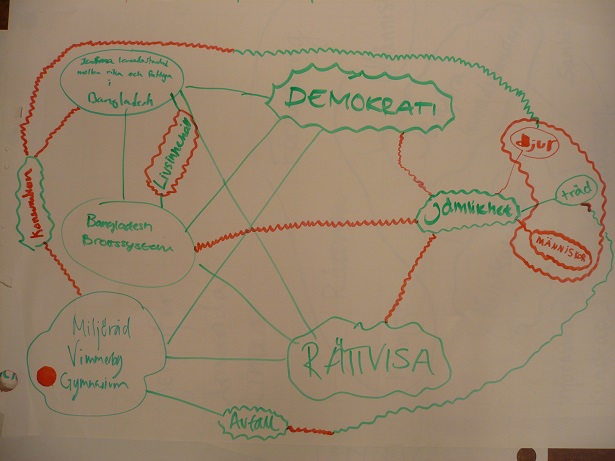 Jämföra levnadsstandard
mellan rika och fattiga
i
Bangladesh
DEMOKRATI
Djur
Livsinnehåll
träd
Konsumtion
jämlikhet
Bangladesh
Brottssystem
MÄNNISKOR
Miljöråd
Vimmerby
Gymnasium
RÄTTVISA
Avfall